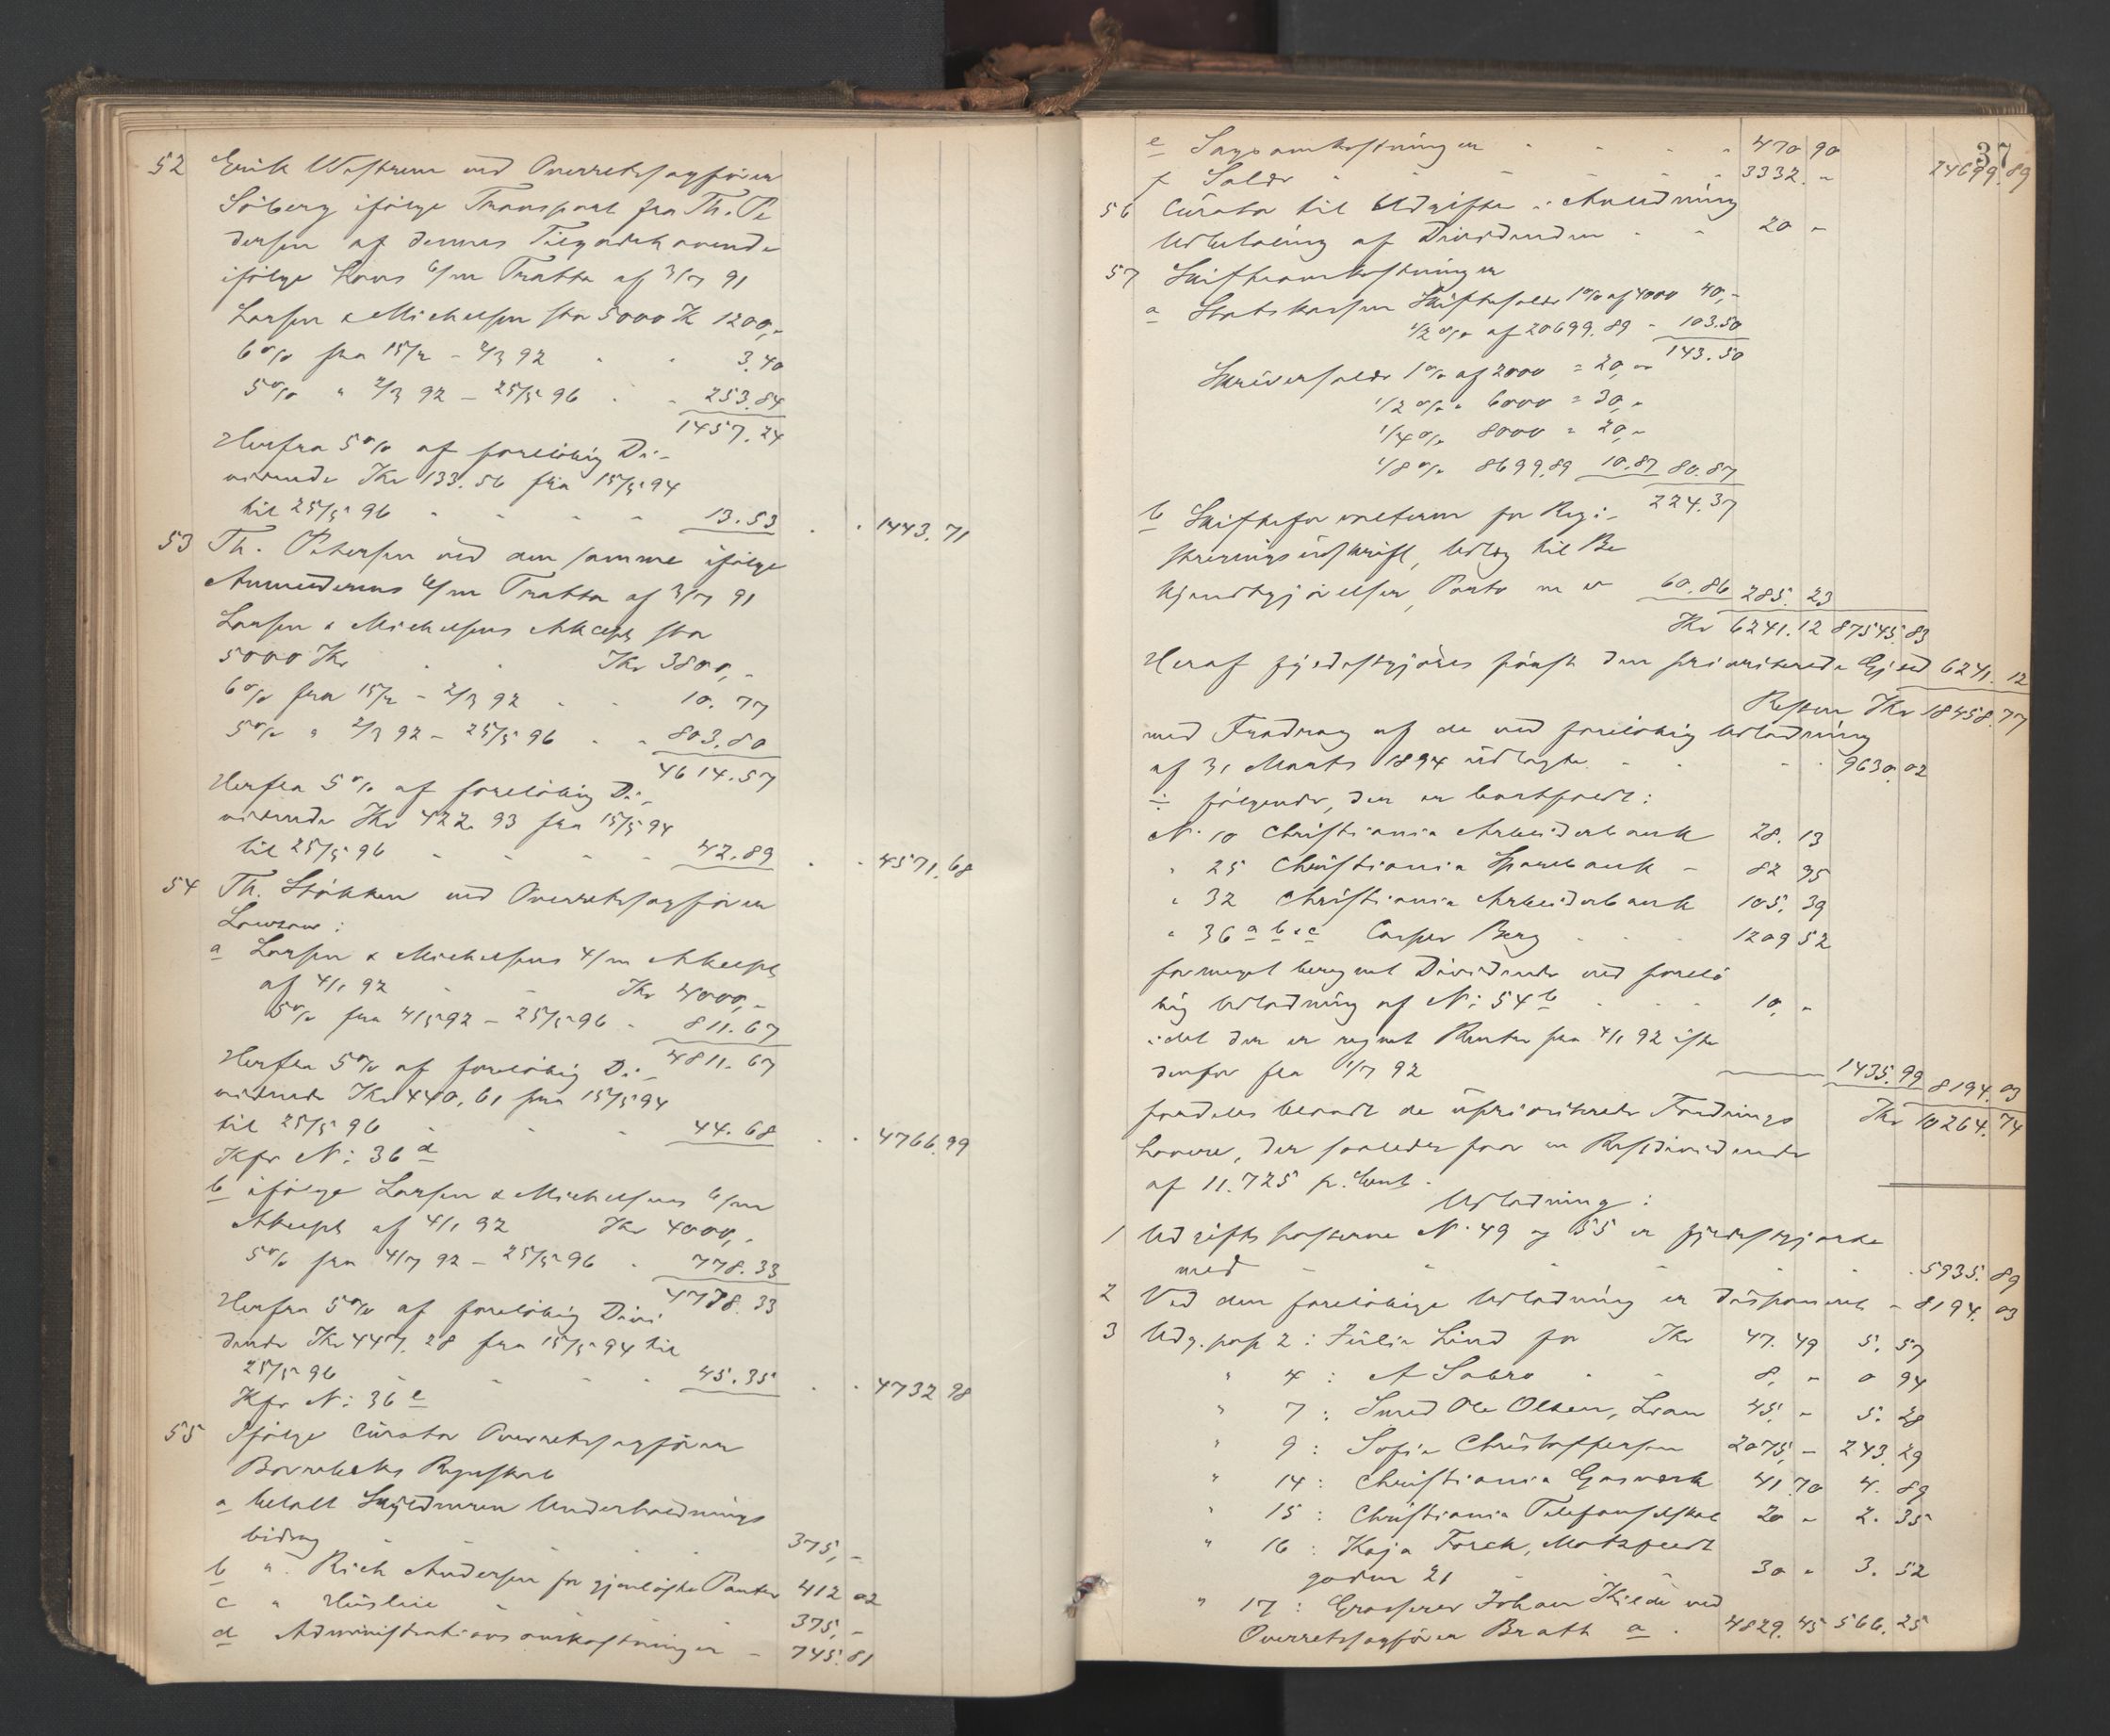 52 Erik Westrum ved Overretssagfører
Solberg ifølge Transport fra Th. Pe
dersen af dennes Tilgodehavende
ifølge Hans 6/m Tratta af 3/7 91
Larsen & Michelsen stor 5000 Kr 1200,-
6% fra 15/2 - 2/3 92 " " 3.40
5% " 2/3 92 - 25/5 96 " " 253.84
1457.24
Herfra 5% af foreløbig Di-
vidende Kr 133.56 fra 15/5 94
til 25/5 96 " " " " 13.53 " " 1443.71
53 Th. Petersen ved den samme ifølge
Anmelderens 6/m Tratta af 3/7 91
Larsen & Michelsens Akcept stor
5000 Kr " " Kr 3800,-
6% fra 15/2 - 2/3 92 " " 10.77
5% " 2/3 92 - 25/5 96 " " 803.80
4614.57
Herfra 5% af foreløbig Di-
vidende Kr 422.93 fra 15/5 94
til 25/5 96 " " " " 42.89 " " 4571.68
54 Th. Støkken ved Overretssagfører
Lowzow:
a Larsen & Michelsens 4/m Akcept
af 4/1 92 " " Kr 4000,-
5% fra 4/5 92 - 25/5 96 " 811.67
4811.67
Herfra 5% af foreløbig Di-
vidende Kr 440.61 fra 15/5 94
til 25/5 96 " " " 44.68 " " 4766.99
Kfr N: 36 d
b ifølge Larsen & Michelsens 6/m
Akcept af 4/1 92 Kr 4000,-
5% fra 4/7 92 - 25/5 96 " 778.33
4778.33
Herfra 5% af foreløbig Divi
dende Kr 447.28 fra 15/5 94 til
25/5 96 " " " " 45.35 " " 4732.98
Kfr N: 36 e
55 Ifølge Curator Overretssagfører
Regnskab
a betalt Skyldneren Underholdnings
bidrag 375,-
b " Rich Andersen for gjenløste Panter 412 02
c " Husleie " 375,-
d Administrationsomkostninger - 745.81
37
e Sagsomkostninger " " " " 470 90
f Salær " " " " " 3332. " 24699.89
56 Curator til Udgifter i Anledning
Udbetaling af Dividenden " " 20 "
57 Skifteomkostninger
a Statskassen Skiftesalær 1% af 4000 40,-
1/2 % af 20699.89 - 103.50
143.50
Skriversalær 1% af 2000 = 20,-
1/2 % " 6000 = 30,-
1/4 % 8000 = 20,-
1/8 % 8699.89 10.87 80.87
224.37
b Skifteforvalteren for Regi-
streringsudskrift, Udlæg til Be
kjendtgjørelser, Porto m v 60.86 285.23
Kr 6241.12 87545.83
Heraf fyldestgjøres først den prioriterede Gjæld 6241.12
Resten Kr 18458.77
med Fradrag af de ved foreløbig Udlodning
af 31 Marts 1894 udlagte " " " " 9630.02
÷ følgende, der er bortfaldt:
N: 10 Christiania Arbeiderbank 28. 13
" 25 Christiania Sparebank - 82 95
" 32 Christiania Arbeiderbank 105. 39
" 36 a b & c Casper Berg " " " 1209 52
formeget beregnet Dividende ved forelø
big Udlodning af N: 54 b " " " 10, -
idet der er regnet Renter fra 4/1 92 iste
denfor fra 4/7 92
1435.99 8194.03
fordeles blandt de uprioriterede Fordrings Kr 10264.74
havere, der saaledes faar en Restdividende
af 11.725 p. Cent.
Udlodning:
1 Udgiftsposterne N: 49 og 55 er fyldestgjorte
med " " " " " " 5935.89
2 Ved den foreløbige Udlodning er disponeret - 8194.03
3 Udg. post 2: Julie Lind for Kr 47. 49 5. 57
" 4: A Sabro " " 8, - 0 94
" 7: Smed Ole Olsen, Lian 45. - 5. 28
" 9: Sofie Christoffersen 2075, - 243.29
" 14: Christiania Gasværk 41.70 4. 89
" 15: Christiania Telefonselskab 20 - 2. 35
" 16: Kaja Torch, Motzfeldt
gaden 21 " " 30 " 3. 52
" 17: Grosserer Johan Kilde ved
Overretssagfører Brath a . 4829. 45 566. 25